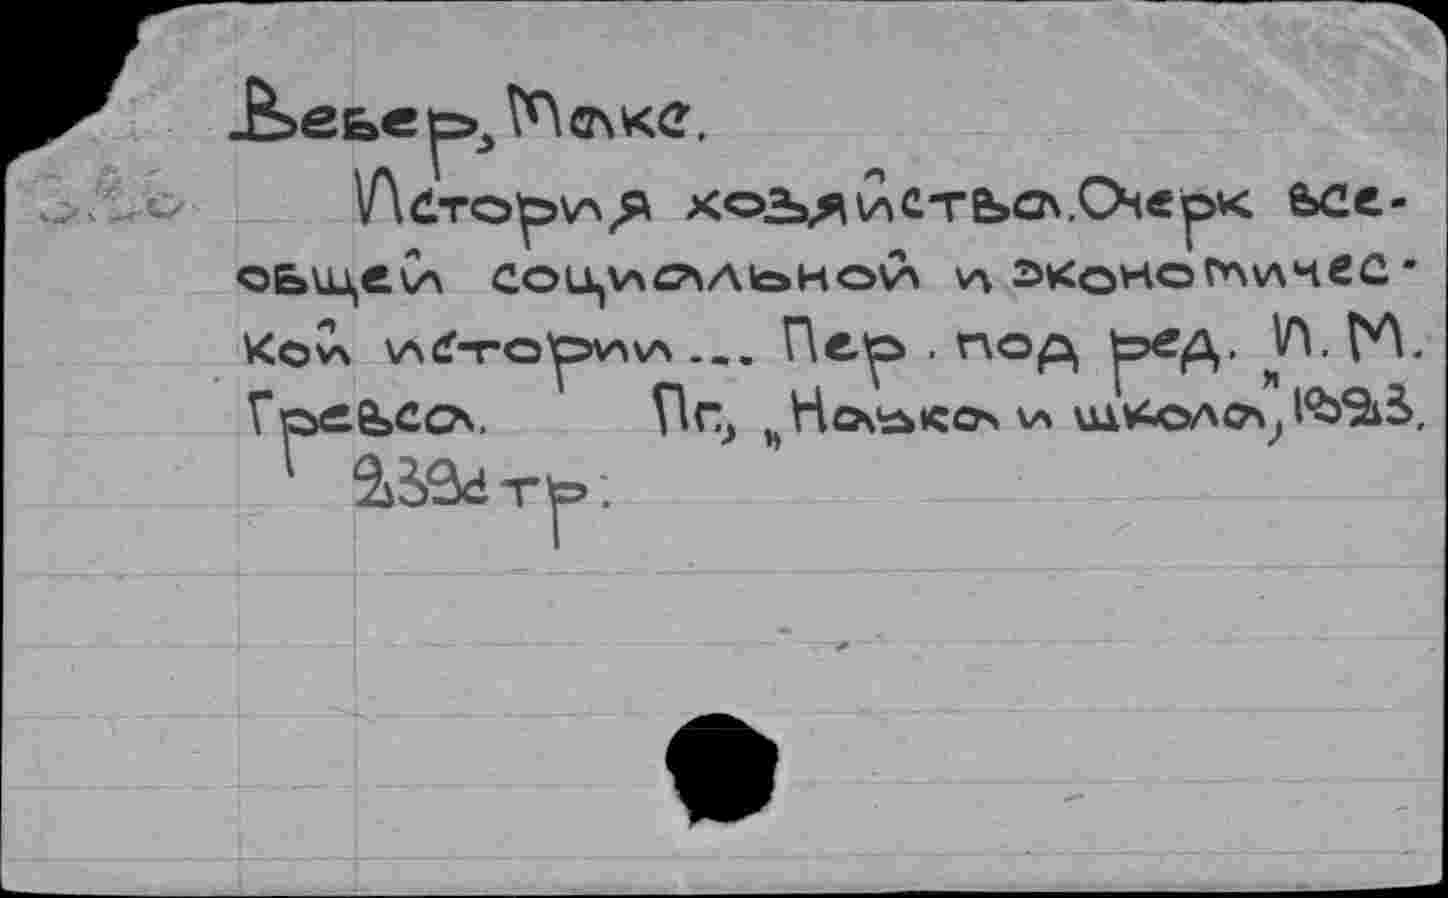 Вебер, Макс.
История хозяйства. Очерк все-
общей социальной и экономичес-
кой истории... Пер. под ред. И. М.
Гревса. Пг., „Наука и школа", 1923.